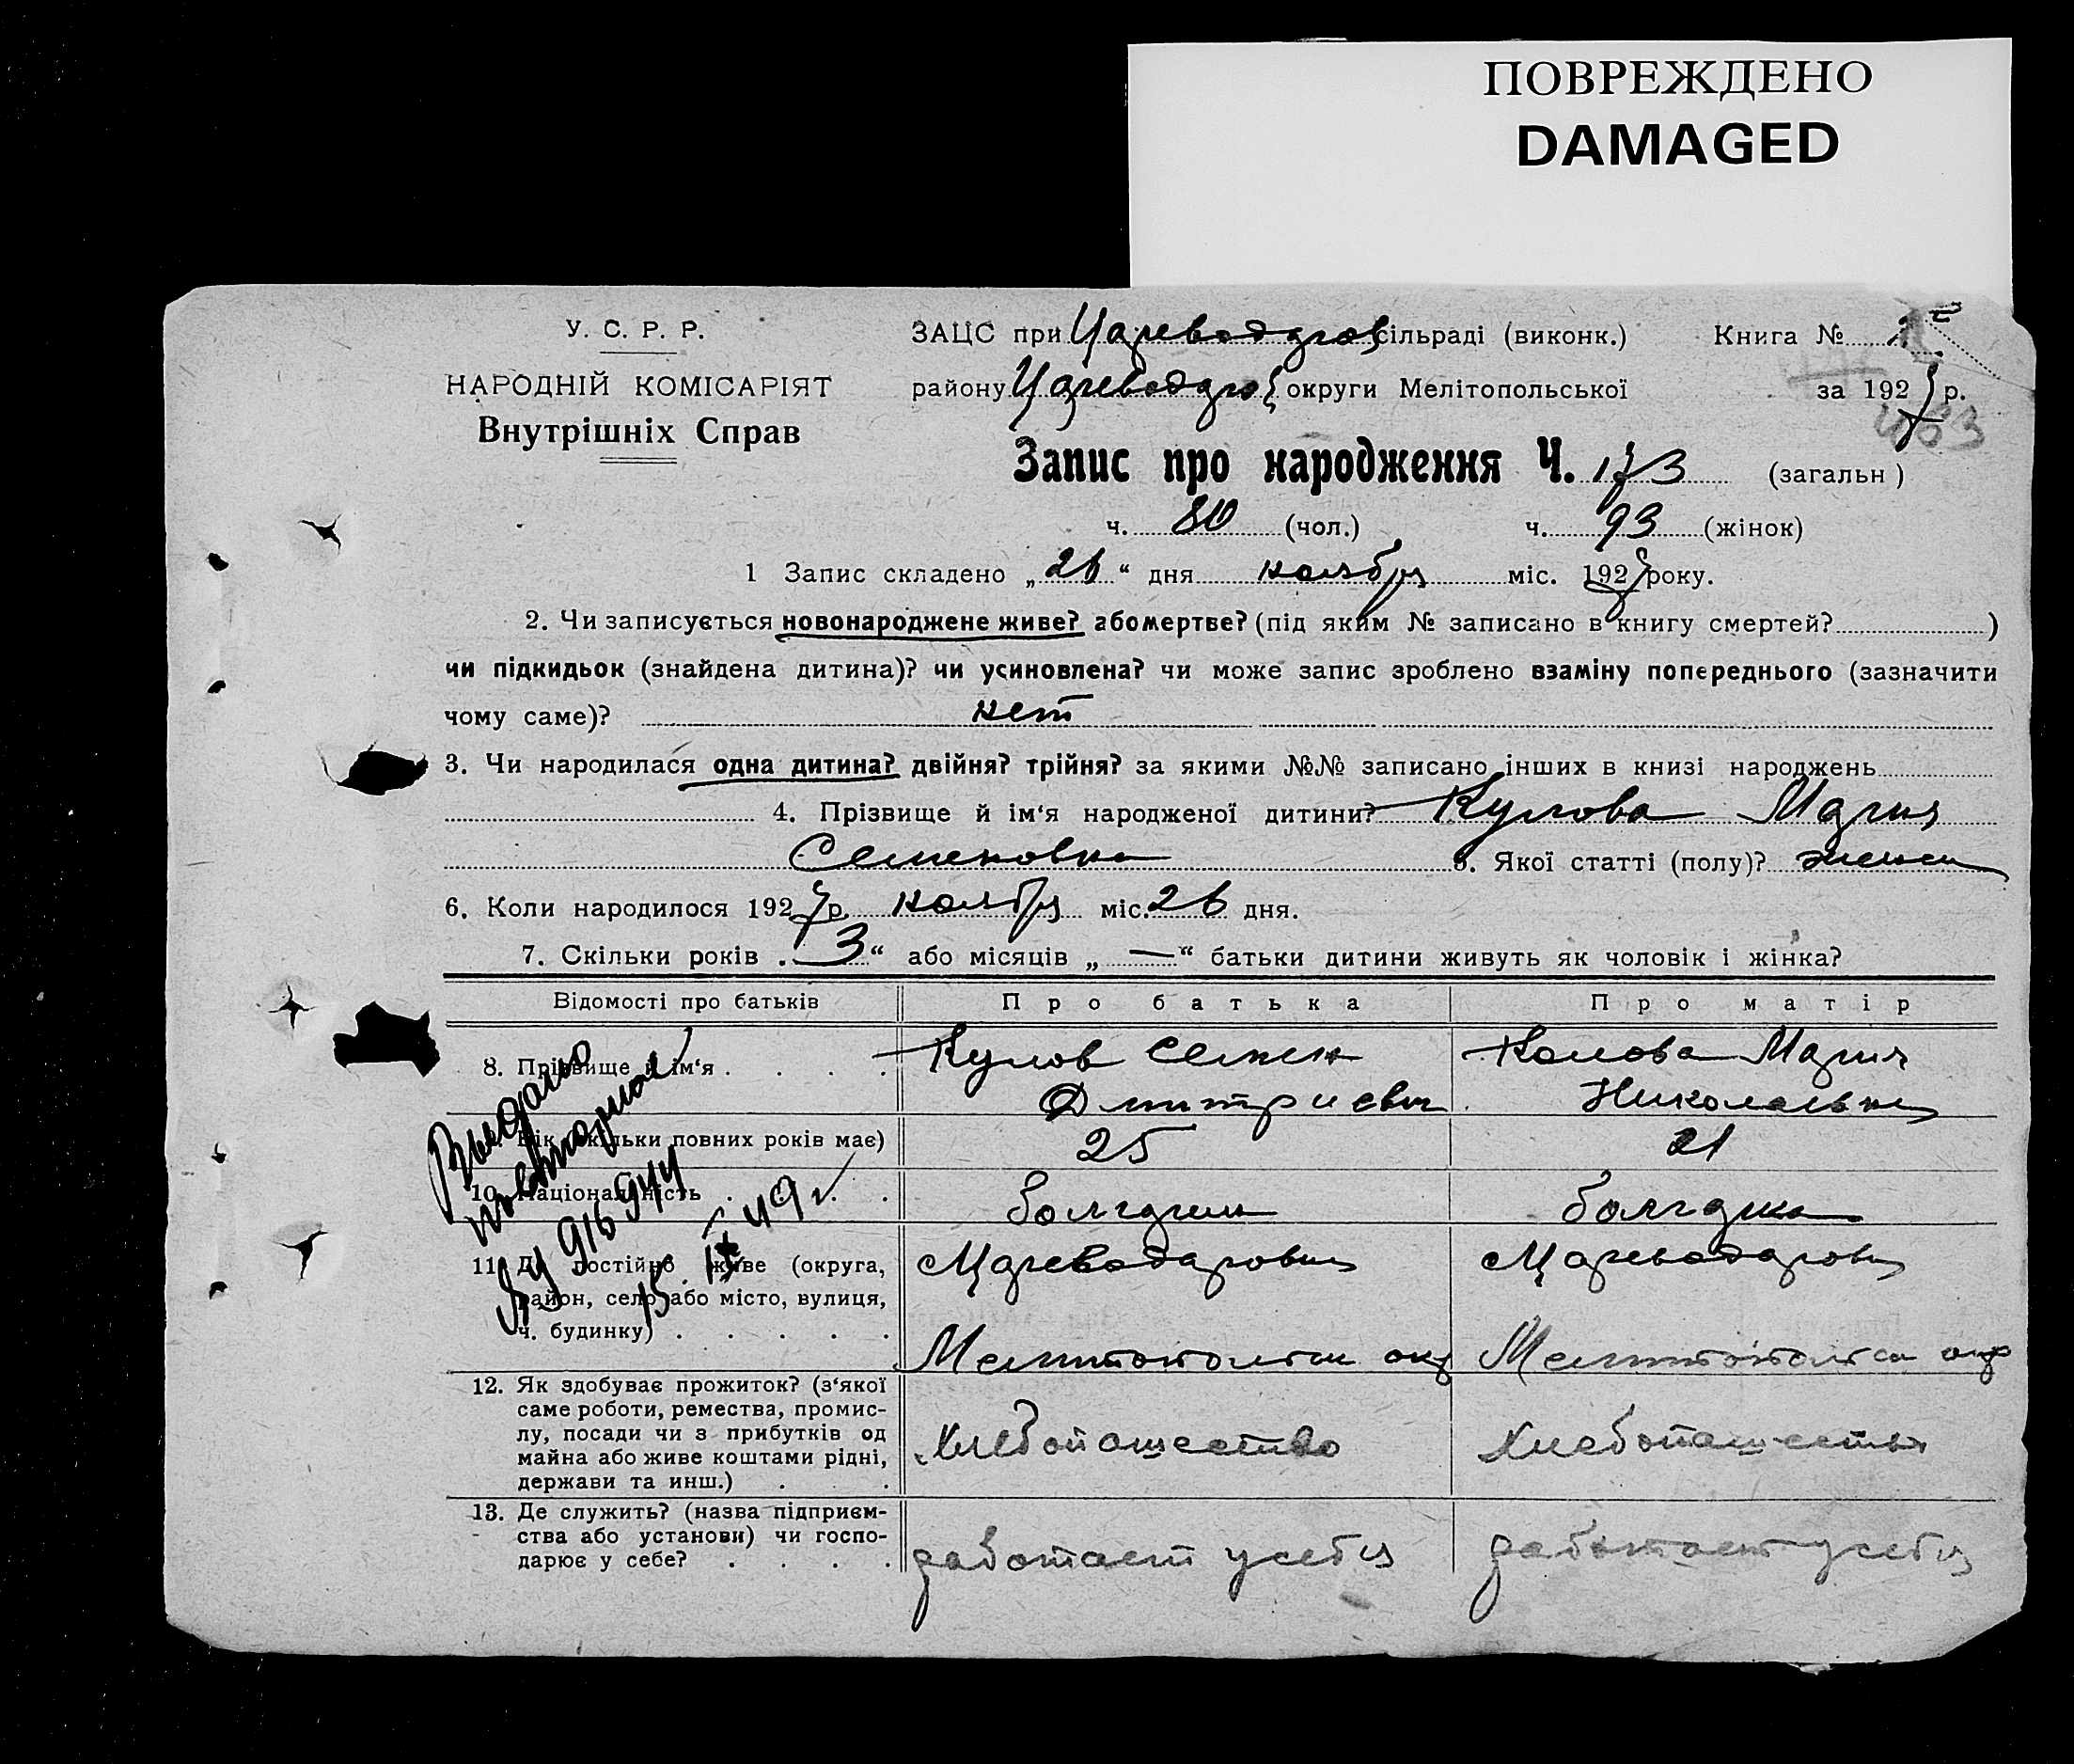 ПОВРЕЖДЕНО
DAMAGED
У. С. Р. Р.
НАРОДНІЙ КОМІСАРІЯТ
Внутрішніх Справ
ЗАЦС при Цареводаров сільраді (виконк.) Книга №
району Цареводаров округи Мелітопольської за 1927 р.
483
Запис про народження Ч. 173 (загальн)
ч. 80 (чол.) ч. 93 (жінок)
1 Запис складено „26“ дня ноября міс. 1927 року.
2. Чи записується новонароджене живе? або мертве? (під яким № записано в книгу смертей? )
чи підкидьок (знайдена дитина)? чи усиновлена? чи може запис зроблено взаміну попереднього (зазначити
чому саме)? нет
3. Чи народилася одна дитина? двійня? трійня? за якими №№ записано інших в книзі народжень
4. Прізвище й ім‘я народженої дитини? Курлова Мария
Семеновна 5. Якої статті (полу)? женск
6. Коли народилося 1927 р. ноября міс. 26 дня.
7. Скільки років „3“ або місяців „—“ батьки дитини живуть як чоловік і жінка?
Відомості про батьків Про батька Про матір
8. Прізвище й ім‘я . . . . Курлов Семен Мария
Дмитриевич Николаевна
9. Вік (скільки повних років має) 25 21
10. Національність . . . . болгарин болгарка
11. Де постійно живе (округа, Цареводаровка Цареводаровка
район, село або місто, вулиця,
ч. будинку) . . . . . Мелитопольск окр Мелитопольск окр
12. Як здобуває прожиток? (з‘якої
саме роботи, ремества, промис-
лу, посади чи з прибутків од Хлебопашество Хлебопашество
майна або живе коштами рідні,
держави та инш.) . . .
13. Де служить? (назва підприєм-
ства або установи) чи госпо-
дарює у себе? . . . . работает у себя работает у себя
Выдано
повторное
916944
15 IX 49 г